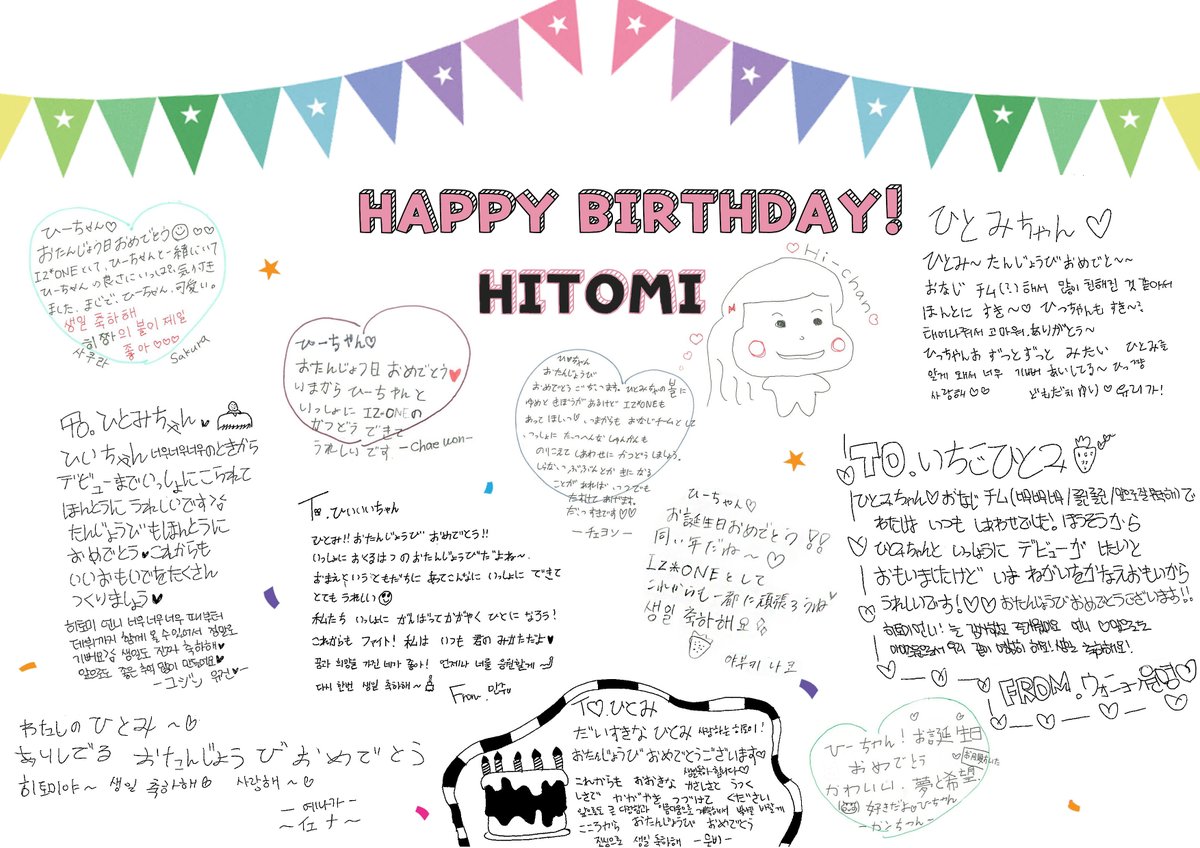 HAPPY BIRTHDAY!
HITOMI
Hi-chan
ひーちゃん♡
おたんじょう日おめでとう☺♡♡
IZ*ONEにいて、ひーちゃんと一緒にいて
ひーちゃんの良さにいっぱい気付き
ました。まじで、ひーちゃん、可愛い。
생일 축하해
히짱의 볼이 제일
좋아♡♡♡
사쿠라 Sakura
ひーちゃん♡
おたんじょう日 おめでとう♥
いまから ひーちゃんと
いっしょに IZ*ONEの
かつどう できて
うれしいです -Chaewon-
ひ♡ちゃん
おたんじょうび
おめでとうございます。ひとみちゃんの볼に
ゆめときぼうがあるけど IZ*ONEも
あってほしい♡、いまからも おなじチームとして
いっしょに たいへんな しゅんかんも
のりこえて しあわせに かつどうしましょう。
ことがあれば、いつでも
たすけてあげます。
だいすきです♡♡
-チェヨン-
ひとみちゃん♡
ひとみ~ たんじょうび おめでと~~
おなじ チム(?)해서 많이 친해진 것 같아서
ほんとに すき~♡ ひっちゃんも すき~?
태어나줘서 고마워. ありがとう~
ひっちゃんお ずっとずっと みたい ひとみを
알게 돼서 너무 기뻐 あいしてる~ 힛짱
사랑해♡♡ どもだち ゆり♡ 유리가!
To. ひとみちゃん♥
ひいちゃん 너무너무너무のときから
デビューまでいっしょにこられて
ほんとうに うれしいです
たんじょうびもほんとうに
おめでとう♥これからも
いいおもいでをたくさん
つくりましょう♥
히토미 언니 너무너무너무 때부터
데뷔까지 함께 올 수 있어서 정말로
기뻐요 생일도 진짜 축하해♥
앞으로도 좋은 추억 많이 만들어요♥
-ユジン 유진-
To. ひいいいちゃん
ひとみ!! おたんじょうび おめでとう!!
いっしょに おくるはつの おたんじょうびだよね~.
おまえというともだちに あてこんなに いっしょに できて
とても うれしい☺
私たち いっしょに がんばってかがやく ひとに なろう!
これからも ファイト! 私は いつも 君の みかただよ♡
꿈과 희망을 가진 네가 좋아! 언제나 너를 응원할게
다시 한번 생일 축하해~
From. 민주
ひーちゃん♡
お誕生日おめでとう!!
同い年だね~♡
IZ*ONEとして
これからも一緒に頑張ろうね
생일 축하해요
야부키 나코
TO. いちごひとみ
ひとみちゃん♡おなじ チム
わたしは いつも しあわせでした。ほうそうから
ひとみちゃんと いっしょうに デビューが したいと
おもいましたけど いま ねがいをかなえおもいから
うれしいです!♡♡ おたんじょうびおめでとうございます!!
FROM. ウォニョン 원영♡
わたしの ひとみ ~♡
ありしてる おたんじょう び おめでとう
히토미야~ 생일 축하해♡ 사랑해~♡
- 예나가 -
~ イェナ ~
TO. ひとみ
だいすきな ひとみ 사랑하는 히토미!
おたんじょうび おめでとうございます♡
생일축하합니다♡
これからも おおきな やさしさと うつく
しさで かがやき つづけて ください
こころから おたんじょうび おめでとう
진심으로 생일 축하해 -은비-
ひーちゃん! お誕生日
おめでとう
かわいい、夢と希望
好きだよ♡ひーちゃん
-カンちゃん-